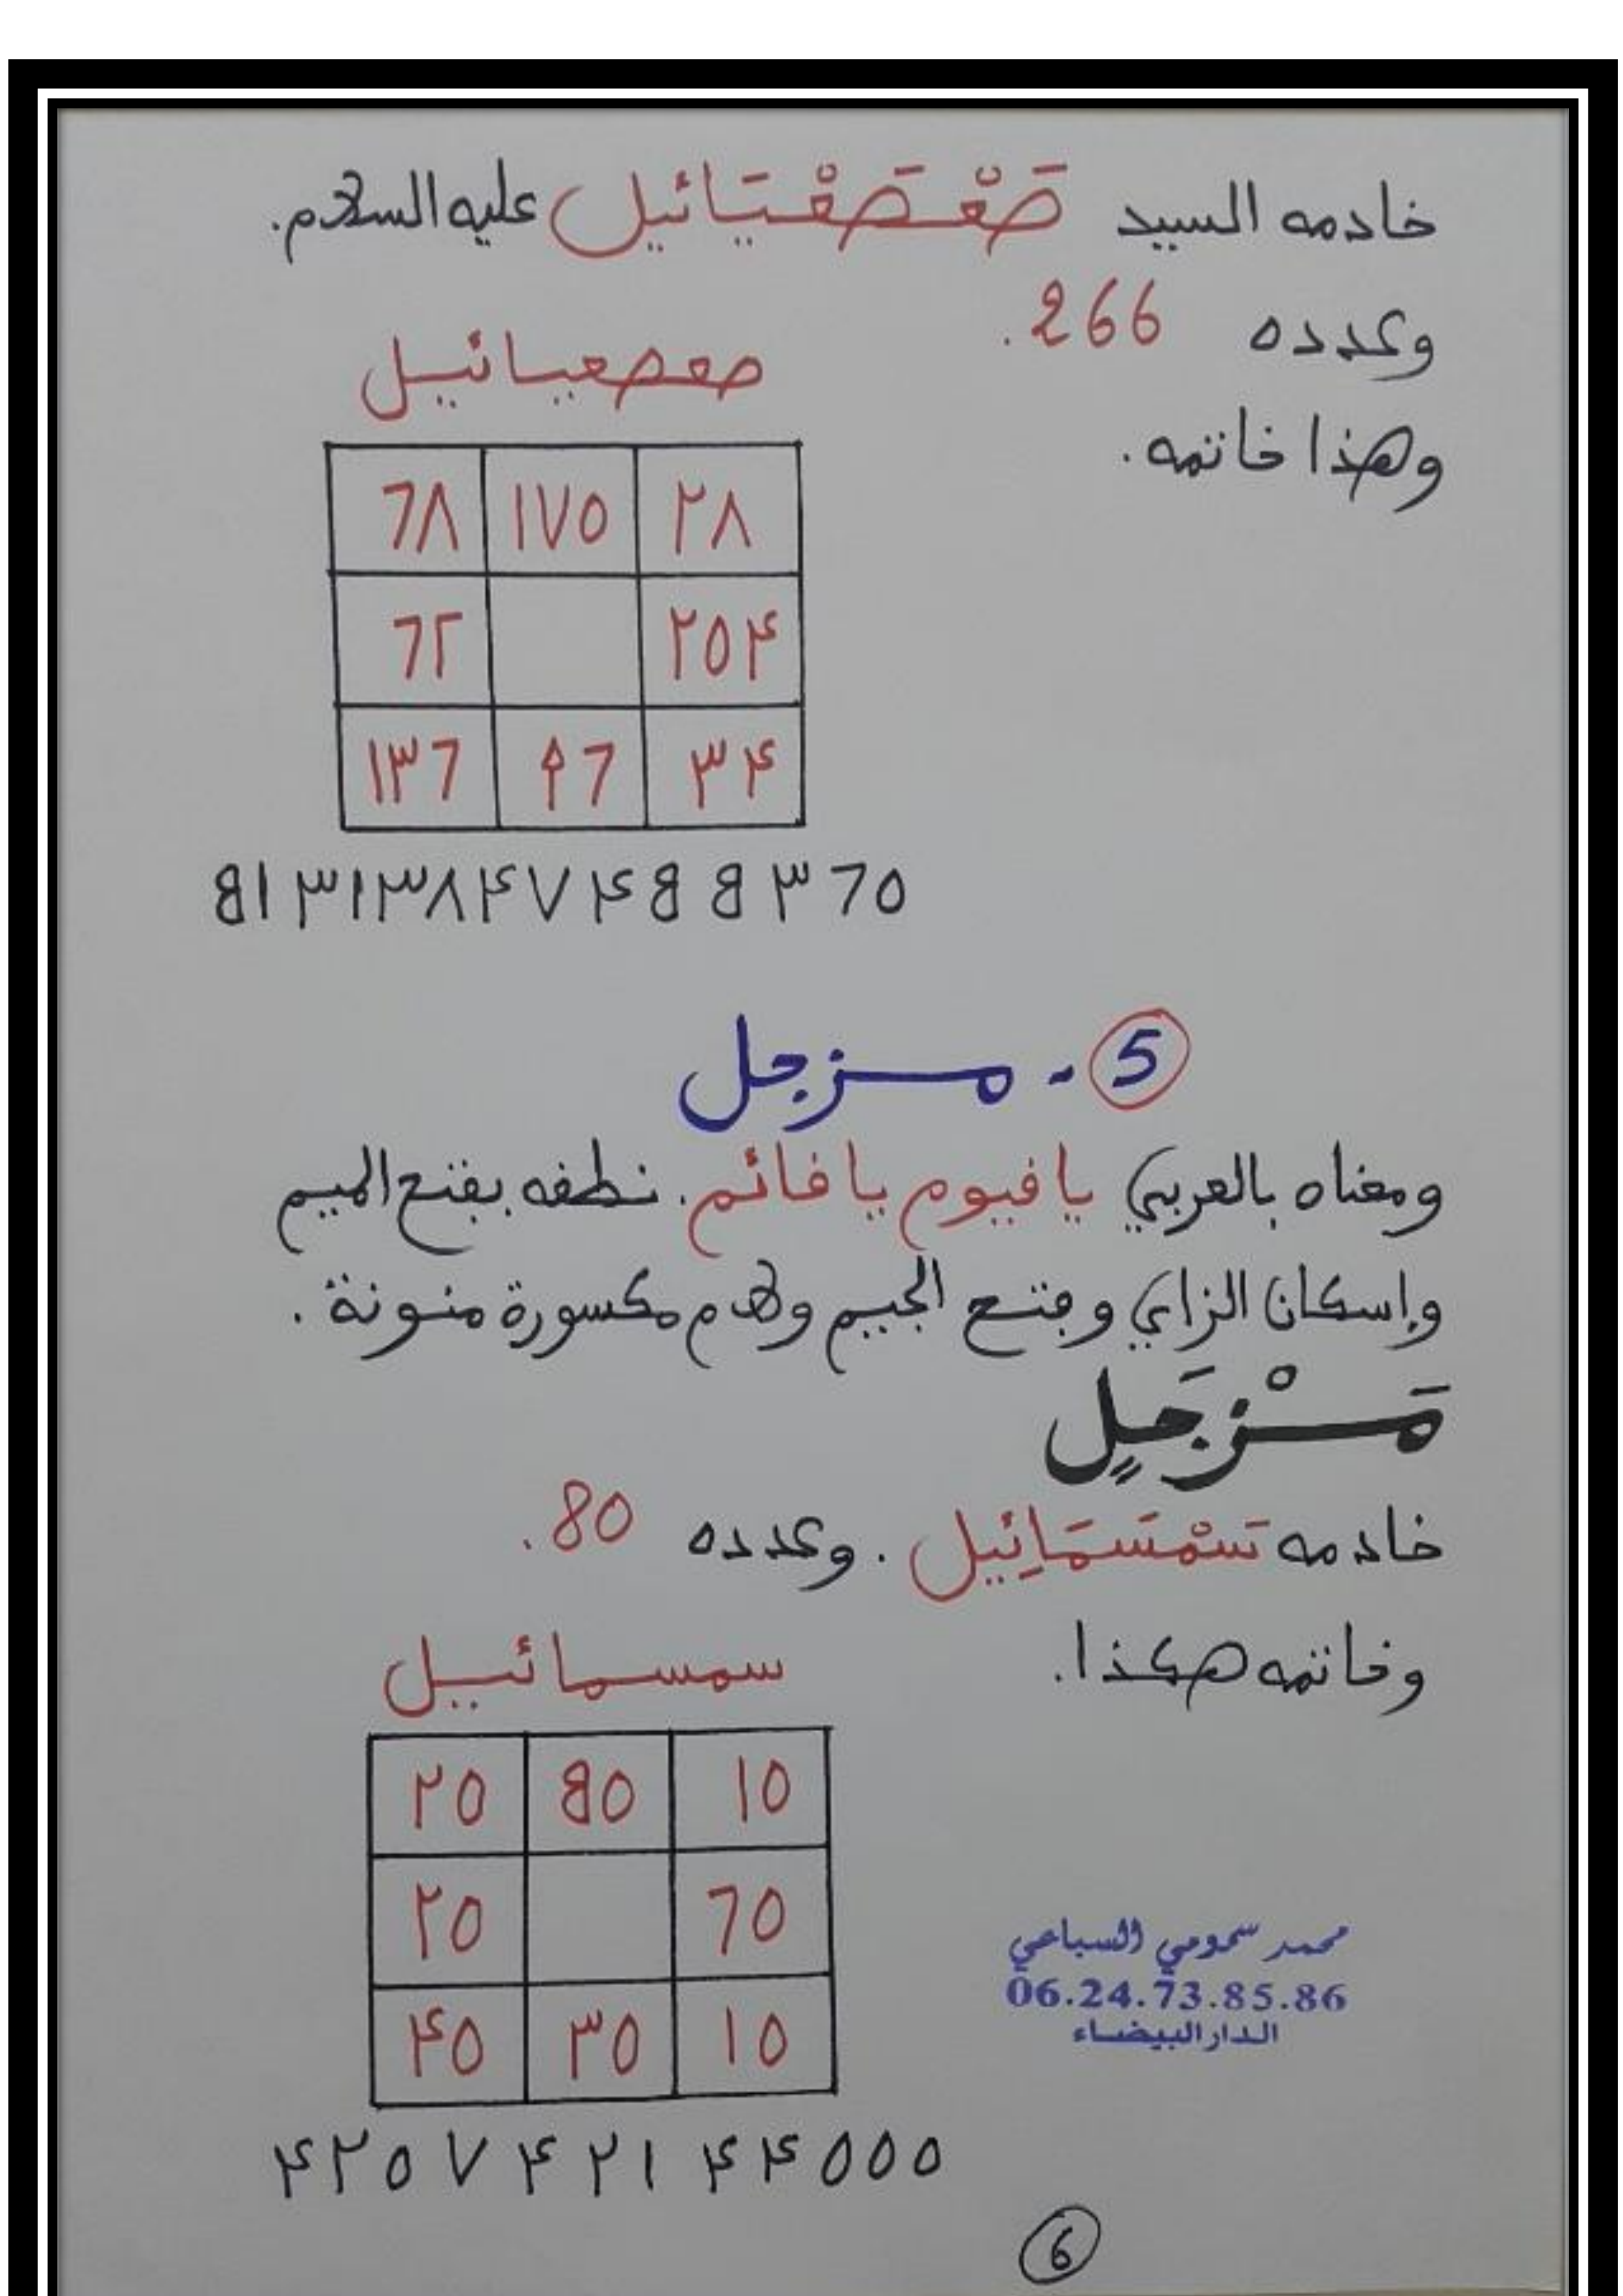 خادمه السيد صَعْصَعْيَائيل عليه السلام.
وعدده 266.
وهذا خاتمه.
صعصعيائيل
٦٨ ١٧٥ ٢٨
٦٢ ٢٥۴
١٣٦ ٩٦ ٣۴
8١٣١٣٨۴٧۴88٣٦٥
5 - مزجل
ومعناه بالعربي يا قيوم يا قائم. نطقه بفتح الميم
وإسكان الزاي وفتح الجيم ولام مكسورة منونة.
مَزْجَلٍ
خادمه سَمْسَمَائِيل. وعدده 80.
وخاتمه هكذا.
سمسمائيل
٢٥ 8٥ ١٥
٢٥ ٦٥
۴٥ ٣٥ ١٥
محمد سمومي السباعي
06.24.73.85.86
الدار البيضاء
۴٢٥٧۴٢١۴۴٥٥٥
6